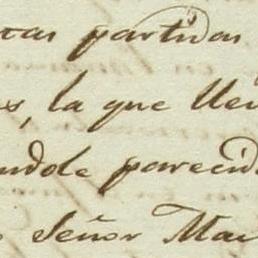 tas partidas
s, la que lle
ndole parecid
Señor Ma